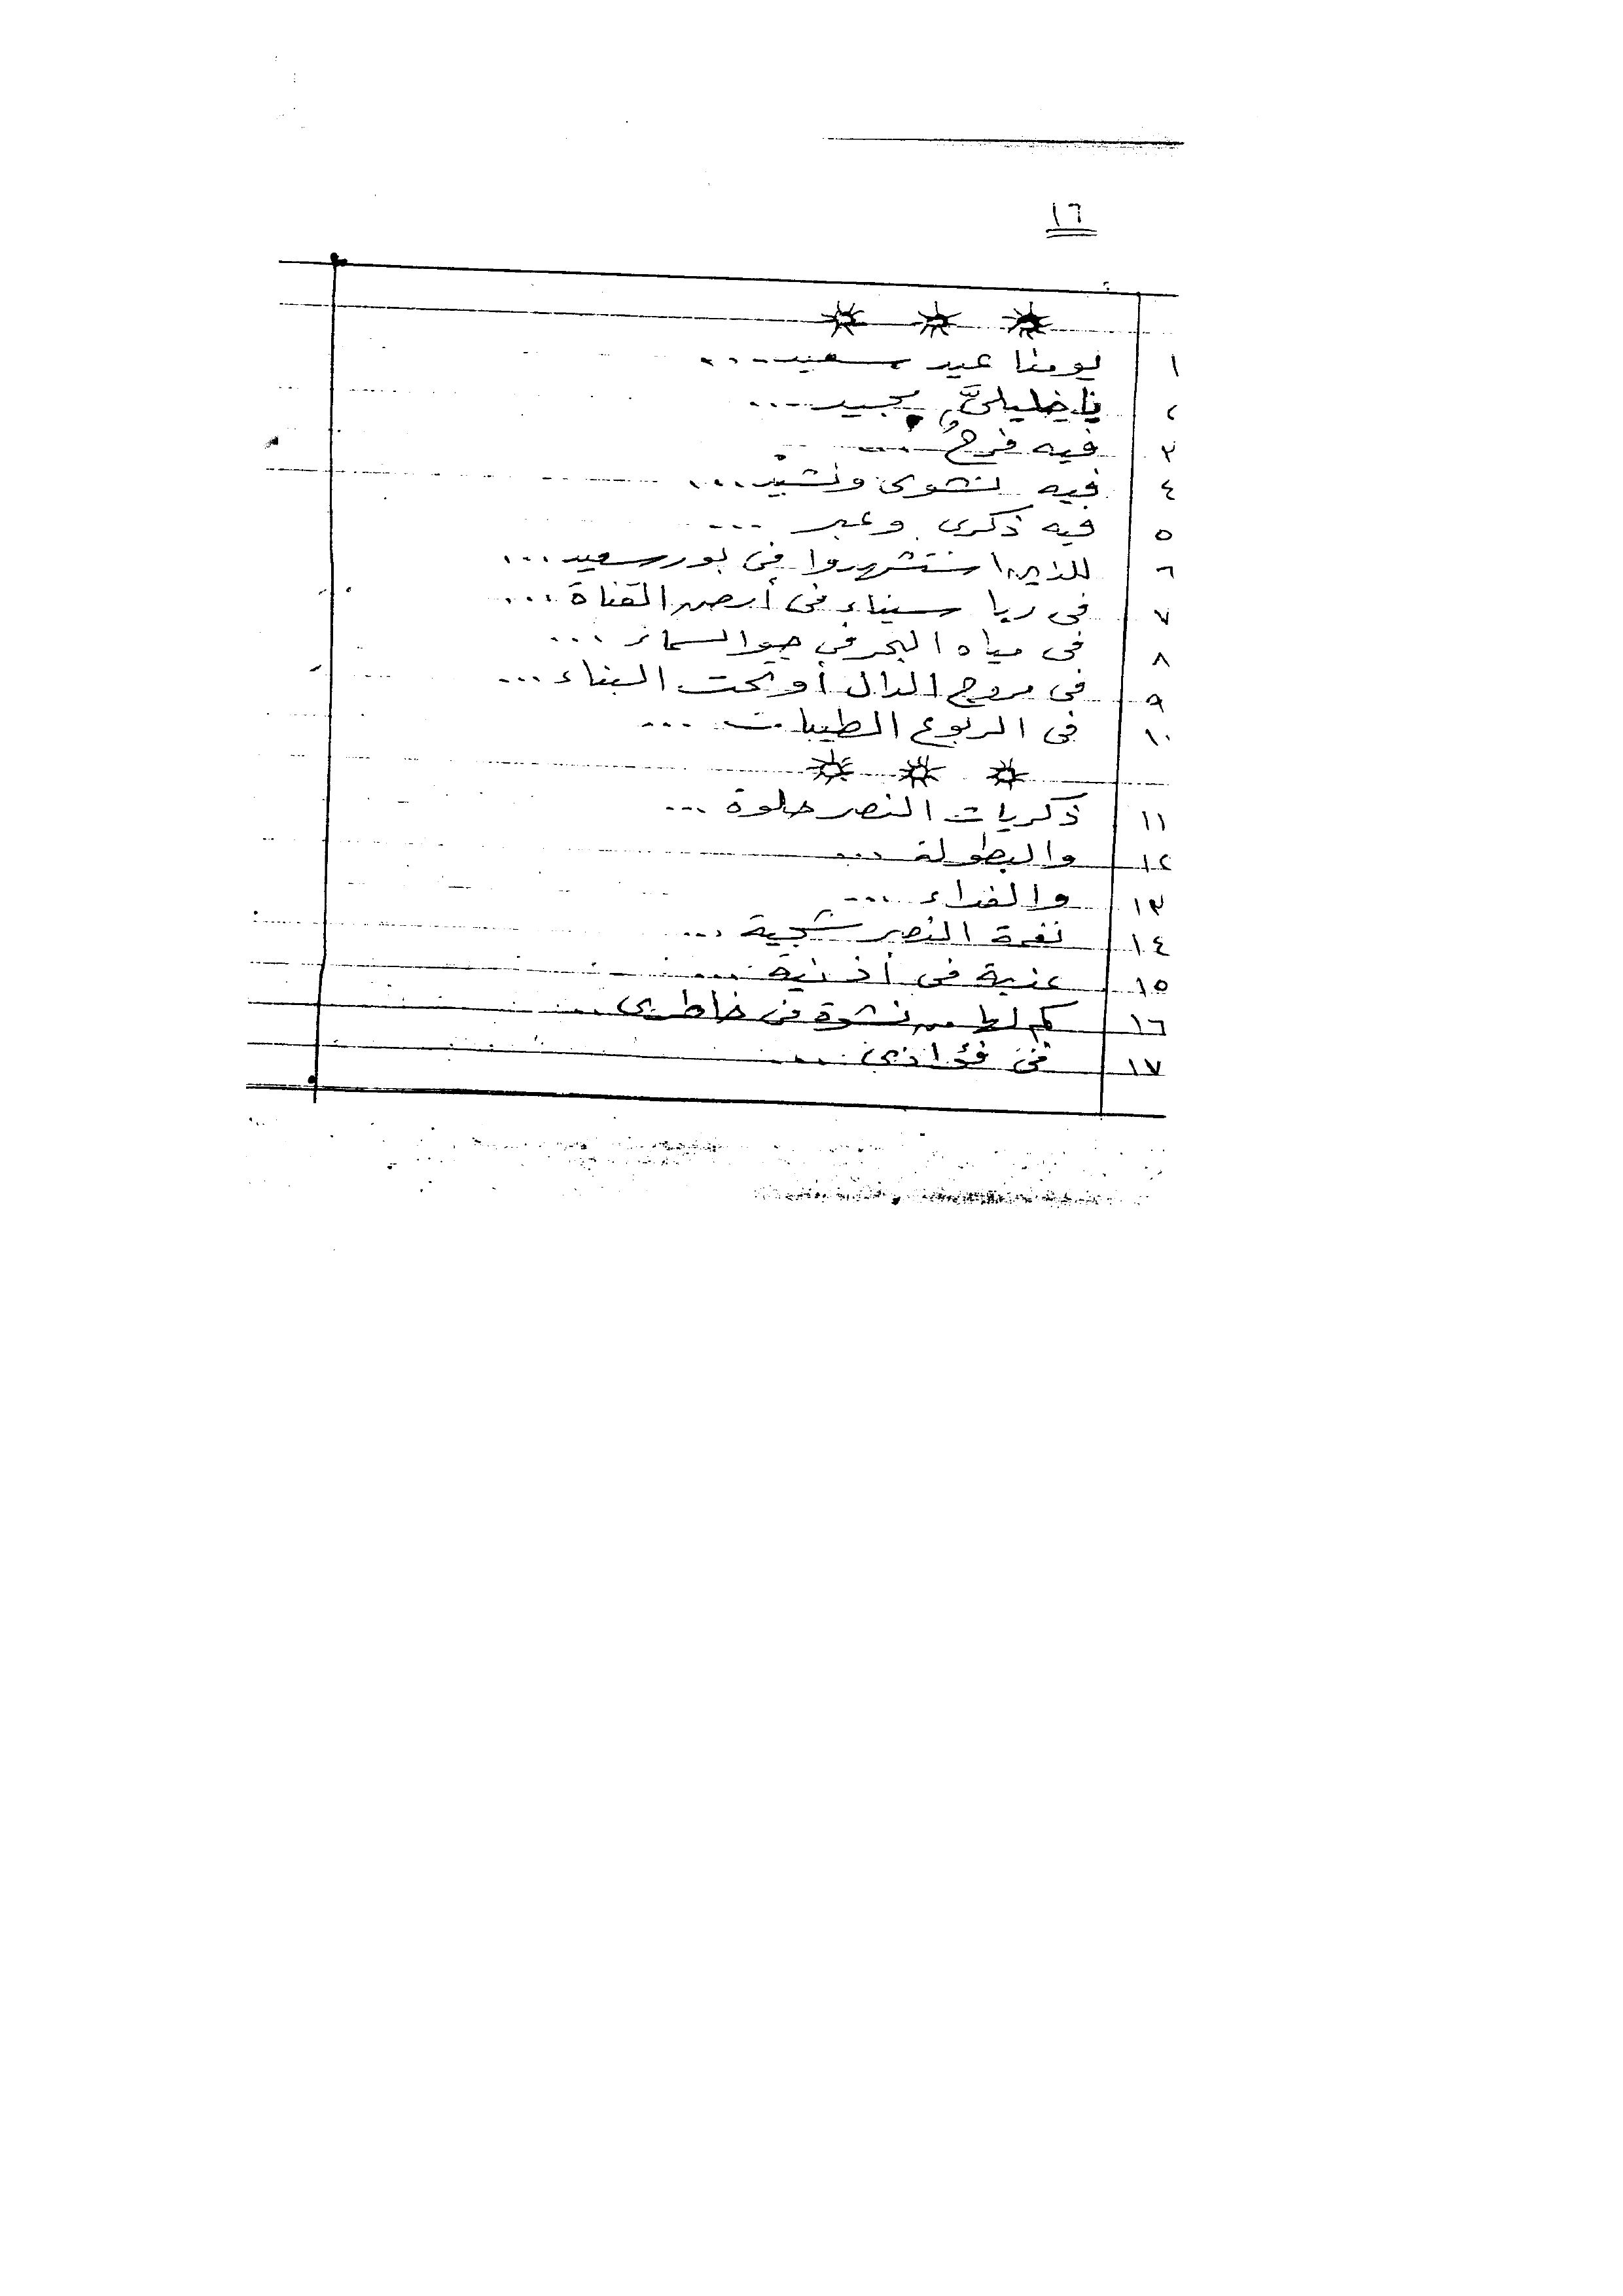 ١٦
١ يومنا عيد سعيد ...
٢ يا خليليَّ مجيد ...
٣ فيه فرحٌ ...
٤ فيه نشوى ونشيد ...
٥ فيه ذكرى وعبر ...
٦ للذين استشهدوا فى بورسعيد ...
٧ فى ربا سيناء فى أرض القناة ...
٨ فى مياه البحر فى جو السماء ...
٩ فى مروج أو تحت البناء ...
١٠ فى الربوع الطيبات ...
١١ ذكريات النصر حلوة ...
١٢ والبطولة ...
١٣ والفداء ...
١٤ نغمة النصر شجية ...
١٥ عذبة فى أذنيه ...
١٦ كم لها من نشوة فى خاطرى ...
١٧ فى فؤادى ...